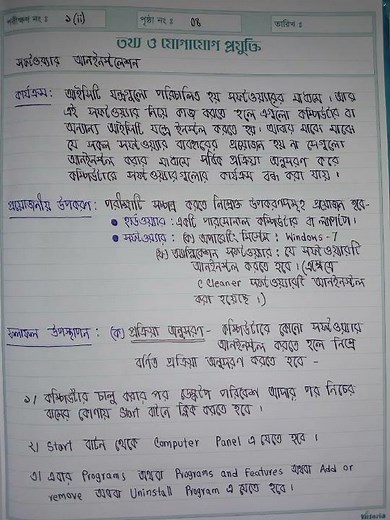 পরীক্ষণ নং : ১(ii) পৃষ্ঠা নং : 04 তারিখ :
তথ্য ও যোগাযোগ প্রযুক্তি
সফটওয়্যার আনইনস্টলেশন
কার্যক্রম : আইসিটি যন্ত্রগুলো পরিচালিত হয় সফটওয়্যারের মাধ্যমে । আর
এই সফটওয়্যার নিয়ে কাজ করতে হলে এগুলো কম্পিউটার বা
অন্যান্য আইসিটি যন্ত্রে ইনস্টল করতে হয় । আবার মাঝে মাঝে
যে সকল সফটওয়্যার ব্যবহারের প্রয়োজন হয় না সেগুলো
আনইনস্টল করার মাধ্যমে সঠিক প্রক্রিয়া অনুসরণ করে
কম্পিউটারে সফটওয়্যারগুলোর কার্যক্রম বন্ধ করা যায় ।
প্রয়োজনীয় উপকরণ : পরীক্ষাটি সম্পন্ন করতে নিম্নোক্ত উপকরণসমূহ প্রয়োজন হবে-
● হার্ডওয়্যার : একটি পারসোনাল কম্পিউটার বা ল্যাপটপ ।
● সফটওয়্যার : (ক) অপারেটিং সিস্টেম : Windows - 7
(খ) অ্যাপ্লিকেশন সফটওয়্যার : যে সফটওয়্যারটি
আনইনস্টল করতে হবে । (এক্ষেত্রে
C Cleaner সফটওয়্যারটি আনইনস্টল
করা হয়েছে ।)
ফলাফল উপস্থাপন : (ক) প্রক্রিয়া অনুসরণ - কম্পিউটারে কোনো সফটওয়্যার
আনইনস্টল করতে হলে নিম্নে
বর্ণিত প্রক্রিয়া অনুসরণ করতে হবে -
১/ কম্পিউটার চালু করার পর ডেস্কটপ পরিবেশ আসার পর নিচের
বামের কোণায় Start বাটনে ক্লিক করতে হবে ।
২/ Start বাটন থেকে Computer Panel এ যেতে হবে ।
৩/ এবার Programs অথবা Programs and Features অথবা Add or
remove অথবা Uninstall Program এ যেতে হবে ।
Victoria